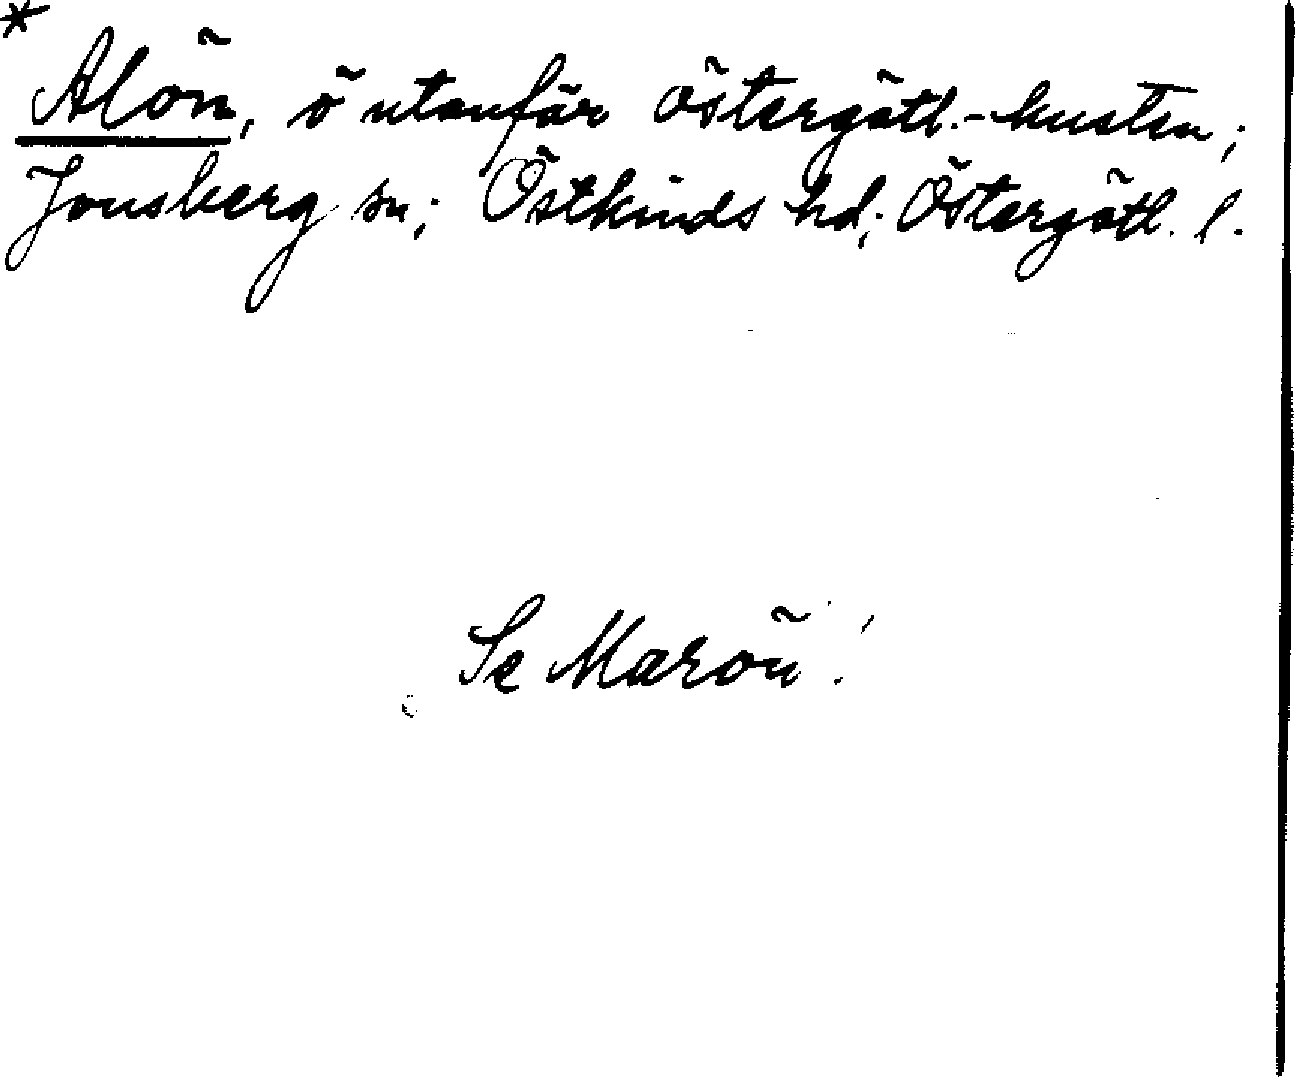 * Alön, ö utanför Östergötl.-kusten;
Jonsberg sn; Östkinds hd; Östergötl. l.
Se Marön!